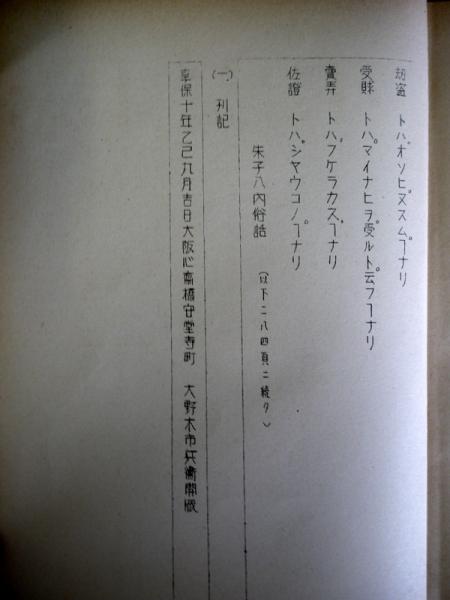 劫盗 トハオソヒヌスムヿナリ
受賕 トハマイナヒヲ受ルト云フヿナリ
賣弄 トハフケラカスヿナリ
佐證 トハシヤウコノヿナリ
朱子八内俗話 (以下二八四頁ニ続ク)
(一) 刊記
享保十年乙巳九月吉日大阪心斎橋安堂寺町 大野木市兵衛開版